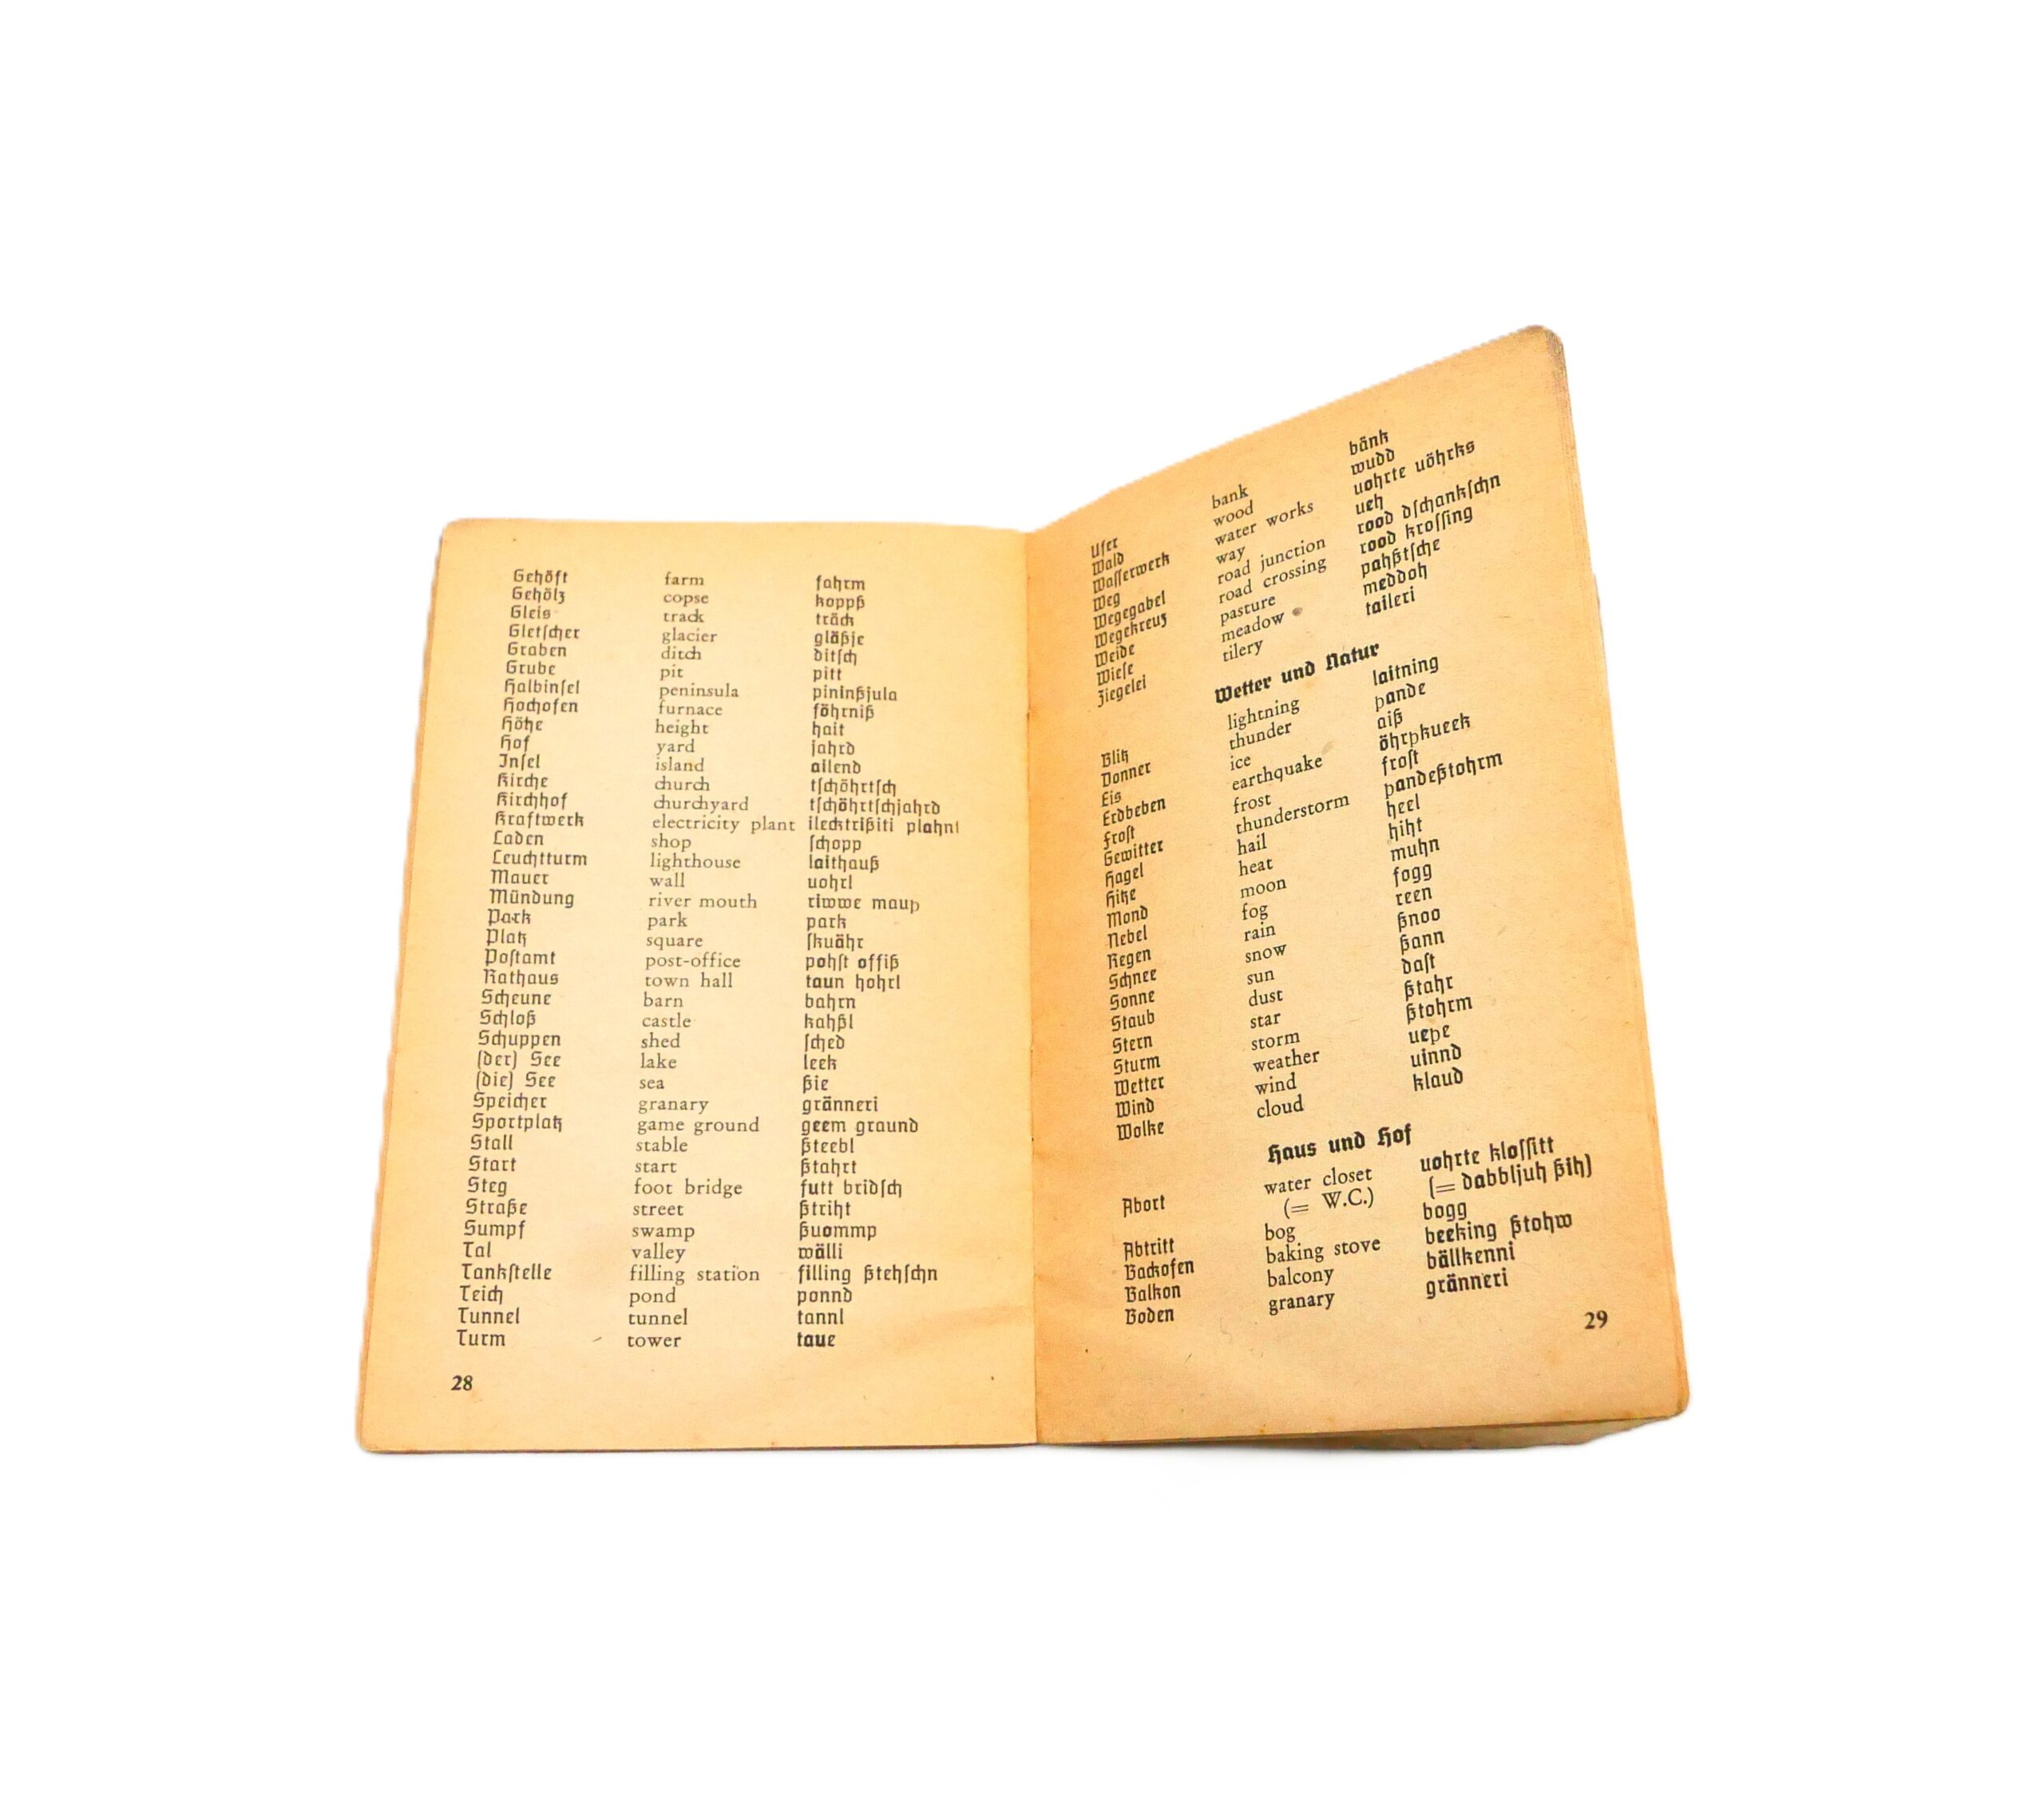 Gehöft farm fahrm
Gehölz copse koppß
Gleis track träck
Gletſcher glacier gläßje
Graben ditch ditſch
Grube pit pitt
Halbinſel peninsula pininßjula
Hochofen furnace föhrniß
Höhe height hait
Hof yard jahrd
Inſel island ailend
Kirche church tſchöhrtſch
Kirchhof churchyard tſchöhrtſchjahrd
Kraftwerk electricity plant ilecktrißiti plahnt
Laden shop ſchopp
Leuchtturm lighthouse laithauß
Mauer wall uohrl
Mündung river mouth riwwe mauþ
Park park park
Platz square ſkuähr
Poſtamt post-office pohſt offiß
Rathaus town hall taun hohrl
Scheune barn bahrn
Schloß castle kahßl
Schuppen shed ſched
(der) See lake leek
(die) See sea ßie
Speicher granary gränneri
Sportplatz game ground geem graund
Stall stable ßteebl
Start start ßtahrt
Steg foot bridge futt bridſch
Straße street ßtriht
Sumpf swamp ßuommp
Tal valley wälli
Tankſtelle filling station filling ßtehſchn
Teich pond ponnd
Tunnel tunnel tannl
Turm tower taue
28
Ufer bank bänk
Wald wood wudd
Waſſerwerk water works uohrte uöhrks
Weg way ueh
Wegegabel road junction rood dſchankſchn
Wegekreuz road crossing rood kroſſing
Weide pasture pahßtſche
Wieſe meadow meddoh
Ziegelei tilery taileri
Wetter und Natur
Blitz lightning laitning
Donner thunder þande
Eis ice aiß
Erdbeben earthquake öhrþkueek
Froſt frost froſt
Gewitter thunderstorm þandeßtohrm
Hagel hail heel
Hitze heat hiht
Mond moon muhn
Nebel fog fogg
Regen rain reen
Schnee snow ßnoo
Sonne sun ßann
Staub dust daſt
Stern star ßtahr
Sturm storm ßtohrm
Wetter weather ueþe
Wind wind uinnd
Wolke cloud klaud
Haus und Hof
Abort water closet uohrte kloſſitt
(= W.C.) (= dabbljuh ßih)
Abtritt bog bogg
Backofen baking stove beeking ßtohw
Balkon balcony bällkenni
Boden granary gränneri
29